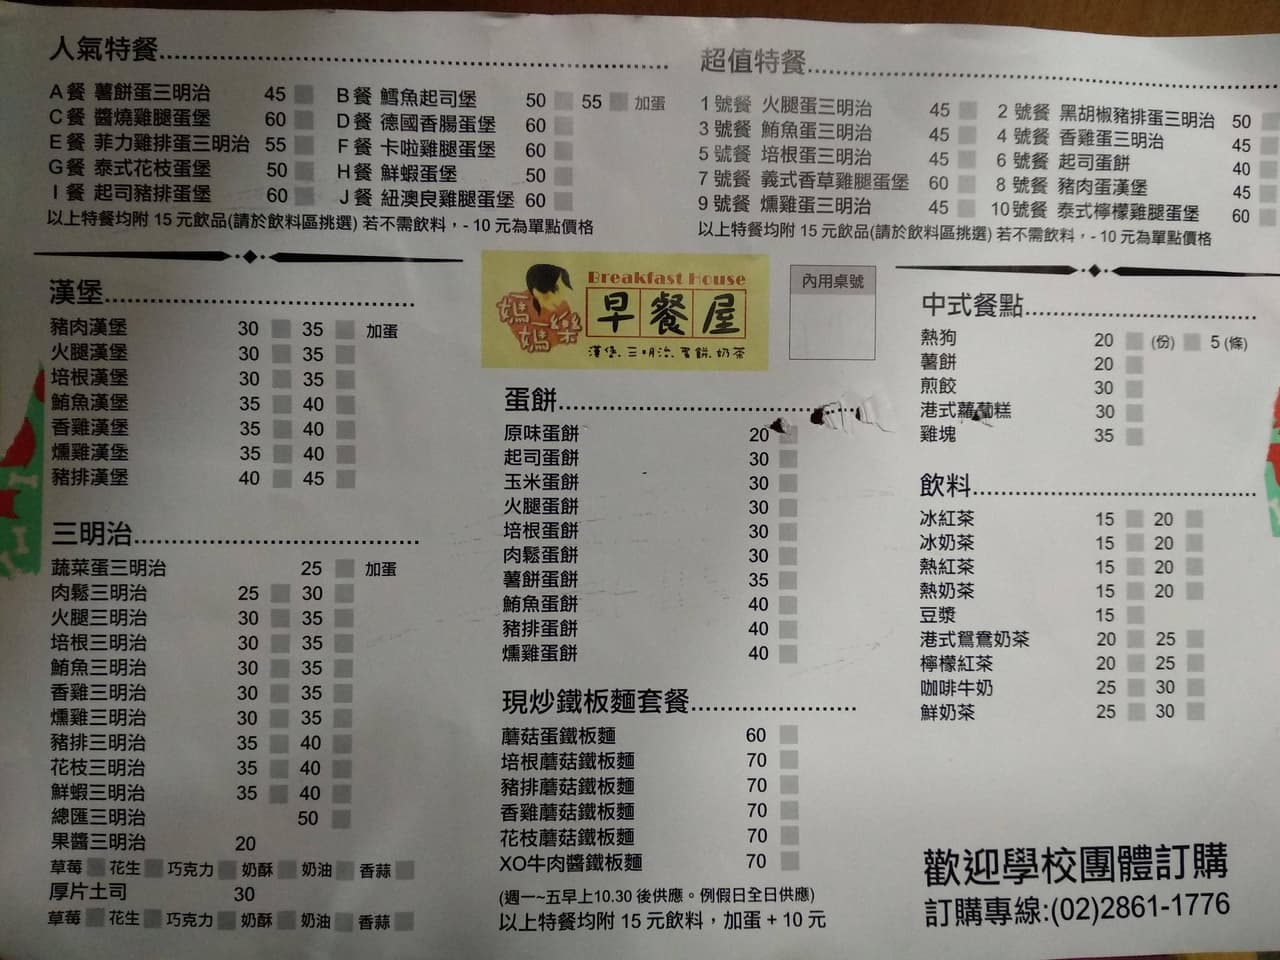 人氣特餐
A餐 薯餅蛋三明治 45
B餐 鱈魚起司堡 50 55 加蛋
C餐 醬燒雞腿蛋堡 60
D餐 德國香腸蛋堡 60
E餐 菲力雞排蛋三明治 55
F餐 卡啦雞腿蛋堡 60
G餐 泰式花枝蛋堡 50
H餐 鮮蝦蛋堡 50
I餐 起司豬排蛋堡 60
J餐 紐澳良雞腿蛋堡 60
以上特餐均附 15 元飲品(請於飲料區挑選) 若不需飲料，- 10 元為單點價格
超值特餐
1號餐 火腿蛋三明治 45
2號餐 黑胡椒豬排蛋三明治 50
3號餐 鮪魚蛋三明治 45
4號餐 香雞蛋三明治 45
5號餐 培根蛋三明治 45
6號餐 起司蛋餅 40
7號餐 義式香草雞腿蛋堡 60
8號餐 豬肉蛋漢堡 45
9號餐 燻雞蛋三明治 45
10號餐 泰式檸檬雞腿蛋堡 60
以上特餐均附 15 元飲品(請於飲料區挑選) 若不需飲料，- 10 元為單點價格
漢堡
豬肉漢堡 30 35 加蛋
火腿漢堡 30 35
培根漢堡 30 35
鮪魚漢堡 35 40
香雞漢堡 35 40
燻雞漢堡 35 40
豬排漢堡 40 45
三明治
蔬菜蛋三明治 25 加蛋
肉鬆三明治 25 30
火腿三明治 30 35
培根三明治 30 35
鮪魚三明治 30 35
香雞三明治 30 35
燻雞三明治 30 35
豬排三明治 35 40
花枝三明治 35 40
鮮蝦三明治 35 40
總匯三明治 50
果醬三明治 20
草莓 花生 巧克力 奶酥 奶油 香蒜
厚片土司 30
草莓 花生 巧克力 奶酥 奶油 香蒜
Breakfast House
媽媽樂
早餐屋
漢堡.三明治.蛋餅.奶茶
內用桌號
蛋餅
原味蛋餅 20
起司蛋餅 30
玉米蛋餅 30
火腿蛋餅 30
培根蛋餅 30
肉鬆蛋餅 30
薯餅蛋餅 35
鮪魚蛋餅 40
豬排蛋餅 40
燻雞蛋餅 40
現炒鐵板麵套餐
蘑菇蛋鐵板麵 60
培根蘑菇鐵板麵 70
豬排蘑菇鐵板麵 70
香雞蘑菇鐵板麵 70
花枝蘑菇鐵板麵 70
XO牛肉醬鐵板麵 70
(週一~五早上10.30 後供應。例假日全日供應)
以上特餐均附 15 元飲料，加蛋 + 10 元
中式餐點
熱狗 20 (份) 5 (條)
薯餅 20
煎餃 30
港式蘿蔔糕 30
雞塊 35
飲料
冰紅茶 15 20
冰奶茶 15 20
熱紅茶 15 20
熱奶茶 15 20
豆漿 15
港式鴛鴦奶茶 20 25
檸檬紅茶 20 25
咖啡牛奶 25 30
鮮奶茶 25 30
歡迎學校團體訂購
訂購專線:(02)2861-1776